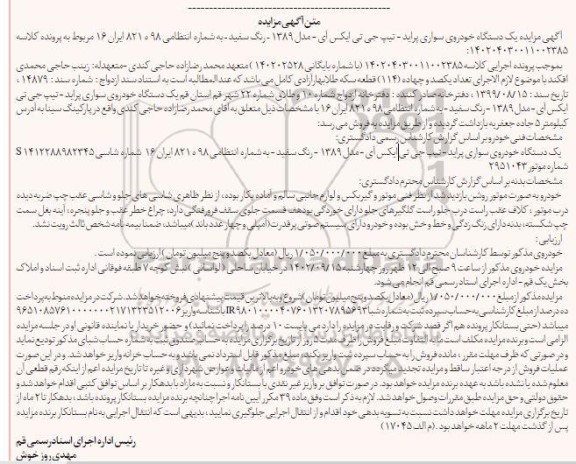 متن آگهی مزایده
آگهی مزایده یک دستگاه خودروی سواری پراید - تیپ جی تی ایکس آی - مدل ۱۳۸۹ - رنگ سفید - به شماره انتظامی ۹۸ ه ۸۲۱ ایران ۱۶ مربوط به پرونده کلاسه
۱۴۰۲۰۴۰۳۰۰۱۱۰۰۲۳۸۵:
بموجب پرونده اجرایی کلاسه ۱۴۰۲۰۴۰۳۰۰۱۱۰۰۲۳۸۵ (با شماره بایگانی ۱۴۰۲۰۲۵۲۸) متعهد محمد رضازاده حاجی کندی - متعهدله: زینب حاجی محمدی
افکند با موضوع لازم الاجرای تعداد یکصد و چهارده (۱۱۴) قطعه سکه طلا بهار آزادی کامل می باشد که عندالمطالبه است به استناد سند ازدواج: شماره سند: ۱۴۸۷۹ ،
تاریخ سند: ۱۳۹۹/۰۸/۱۵ ، دفترخانه صادر کننده: دفترخانه ازدواج شماره ۱۰ و طلاق شماره ۲۲ شهر قم استان قم یک دستگاه خودروی سواری پراید - تیپ جی تی
ایکس آی - مدل ۱۳۸۹ - رنگ سفید - به شماره انتظامی ۹۸ ه ۸۲۱ ایران ۱۶ با مشخصات ذیل متعلق به آقای محمد رضازاده حاجی کندی واقع در پارکینگ سینا به آدرس
کیلومتر ۵ جاده جعفریه بازداشت گردیده و از طریق مزایده به فروش می رسد:
مشخصات فنی خودرو بر اساس گزارش کارشناس رسمی دادگستری:
یک دستگاه خودروی سواری پراید - تیپ جی تی ایکس آی - مدل ۱۳۸۹ - رنگ سفید - به شماره انتظامی ۹۸ ه ۸۲۱ ایران ۱۶ شماره شاسی S۱۴۱۲۲۸۸۹۸۲۳۴۵
شماره موتور ۲۹۵۱۰۴۳
مشخصات بدنه بر اساس گزارش کارشناس محترم دادگستری:
خودرو به صورت موتور روشن بازدید شد از نظر فنی موتور و گیربکس و لوازم جانبی سالم و آماده بکار بوده ، از نظر ظاهری شاسی های جلو و شاسی عقب چپ ضربه دیده
درب موتور ، کلاف عقب راست درب جلو راست گلگیرهای جلو دارای خوردگی بوده قسمت جلوی سقف فرورفتگی دارد، چراغ خطر عقب و جلو پنجره ، آینه بغل سمت
چپ شکسته، بدنه دارای رنگ زدگی و خط و خش بوده و خودرو دارای سیستم صوتی پرقدرت (آمپلی و چهار عدد باند) میباشد، ضمنا بیمه نامه شخص ثالث رویت نشد.
ارزیابی:
خودروی مذکور توسط کارشناسان محترم دادگستری به مبلغ ۱/۰۵۰/۰۰۰/۰۰۰ ریال (معادل یکصد و پنج میلیون تومان) ارزیابی نموده است.
مزایده خودروی مذکور از ساعت ۹ صبح الی ۱۲ ظهر روز چهارشنبه ۱۴۰۲/۰۹/۱۵ در خیابان ساحلی (اباصلی) نبش کوچه ۷ طبقه فوقانی اداره ثبت اسناد و املاک
بخش یک قم - اداره اجرای اسناد رسمی قم انجام می شود.
مزایده مذکور از مبلغ ۱/۰۵۰/۰۰۰/۰۰۰ ریال (معادل یکصد و پنج میلیون تومان) شروع و به بالاترین قیمت پیشنهادی فروخته خواهد شد. شرکت در مزایده منوط به پرداخت
ده درصد از مبلغ کارشناسی به حساب سپرده ثبت به شماره شبا
میباشد (حتی بستانکار پرونده هم اگر قصد شرکت و رقابت در مزایده را دارد می بایست ۱۰ درصد پرداخت نمایند) و حضور خریدار یا نماینده قانونی او در جلسه مزایده
الزامی است و برنده مزایده مکلف است مابه التفاوت مبلغ فروش را ظرف مدت ۵ روز از تاریخ برگزاری مزایده به حساب صندوق ثبت و شماره حساب شبای مذکور تودیع نماید
و در صورتی که ظرف مهلت مقرر ، مانده فروش را به حساب سپرده ثبت واریز نکند، مبلغ مذکور قابل استرداد نمی باشد و به حساب خزانه واریز خواهد شد. و در این صورت
عملیات فروش از درجه اعتبار ساقط و مزایده تجدید میگردد در ضمن بدهی های خودرو اعم از مالیات و عوارض شهرداری و غیره تا تاریخ مزایده اعم از اینکه رقم قطعی آن
معلوم شده یا نشده باشد به عهده برنده مزایده خواهد بود. در صورت توافق بر واریز غیر نقدی با بستانکار و نسبت به مازاد با بدهکار بر اساس توافق کتبی اقدام خواهد شد و
حقوق دولتی و حق مزایده طبق مقررات وصول خواهد شد. لازم به ذکر است وفق ماده ۳۹ مکرر آیین نامه اجرا چنانچه برنده مزایده بستانکار پرونده باشد، بدهکار تا ۲ ماه از
تاریخ برگزاری مزایده مهلت خواهد داشت نسبت به تسویه بدهی خود اقدام و از انتقال اجرایی جلوگیری نمایید ، بدیهی است که انتقال اجرایی به نام بستانکار برنده مزایده
پس از گذشت مهلت ۲ ماهه خواهد بود. (م الف ۱۷۰۴۵)
رئیس اداره اجرای اسناد رسمی قم
مهدی روز خوش